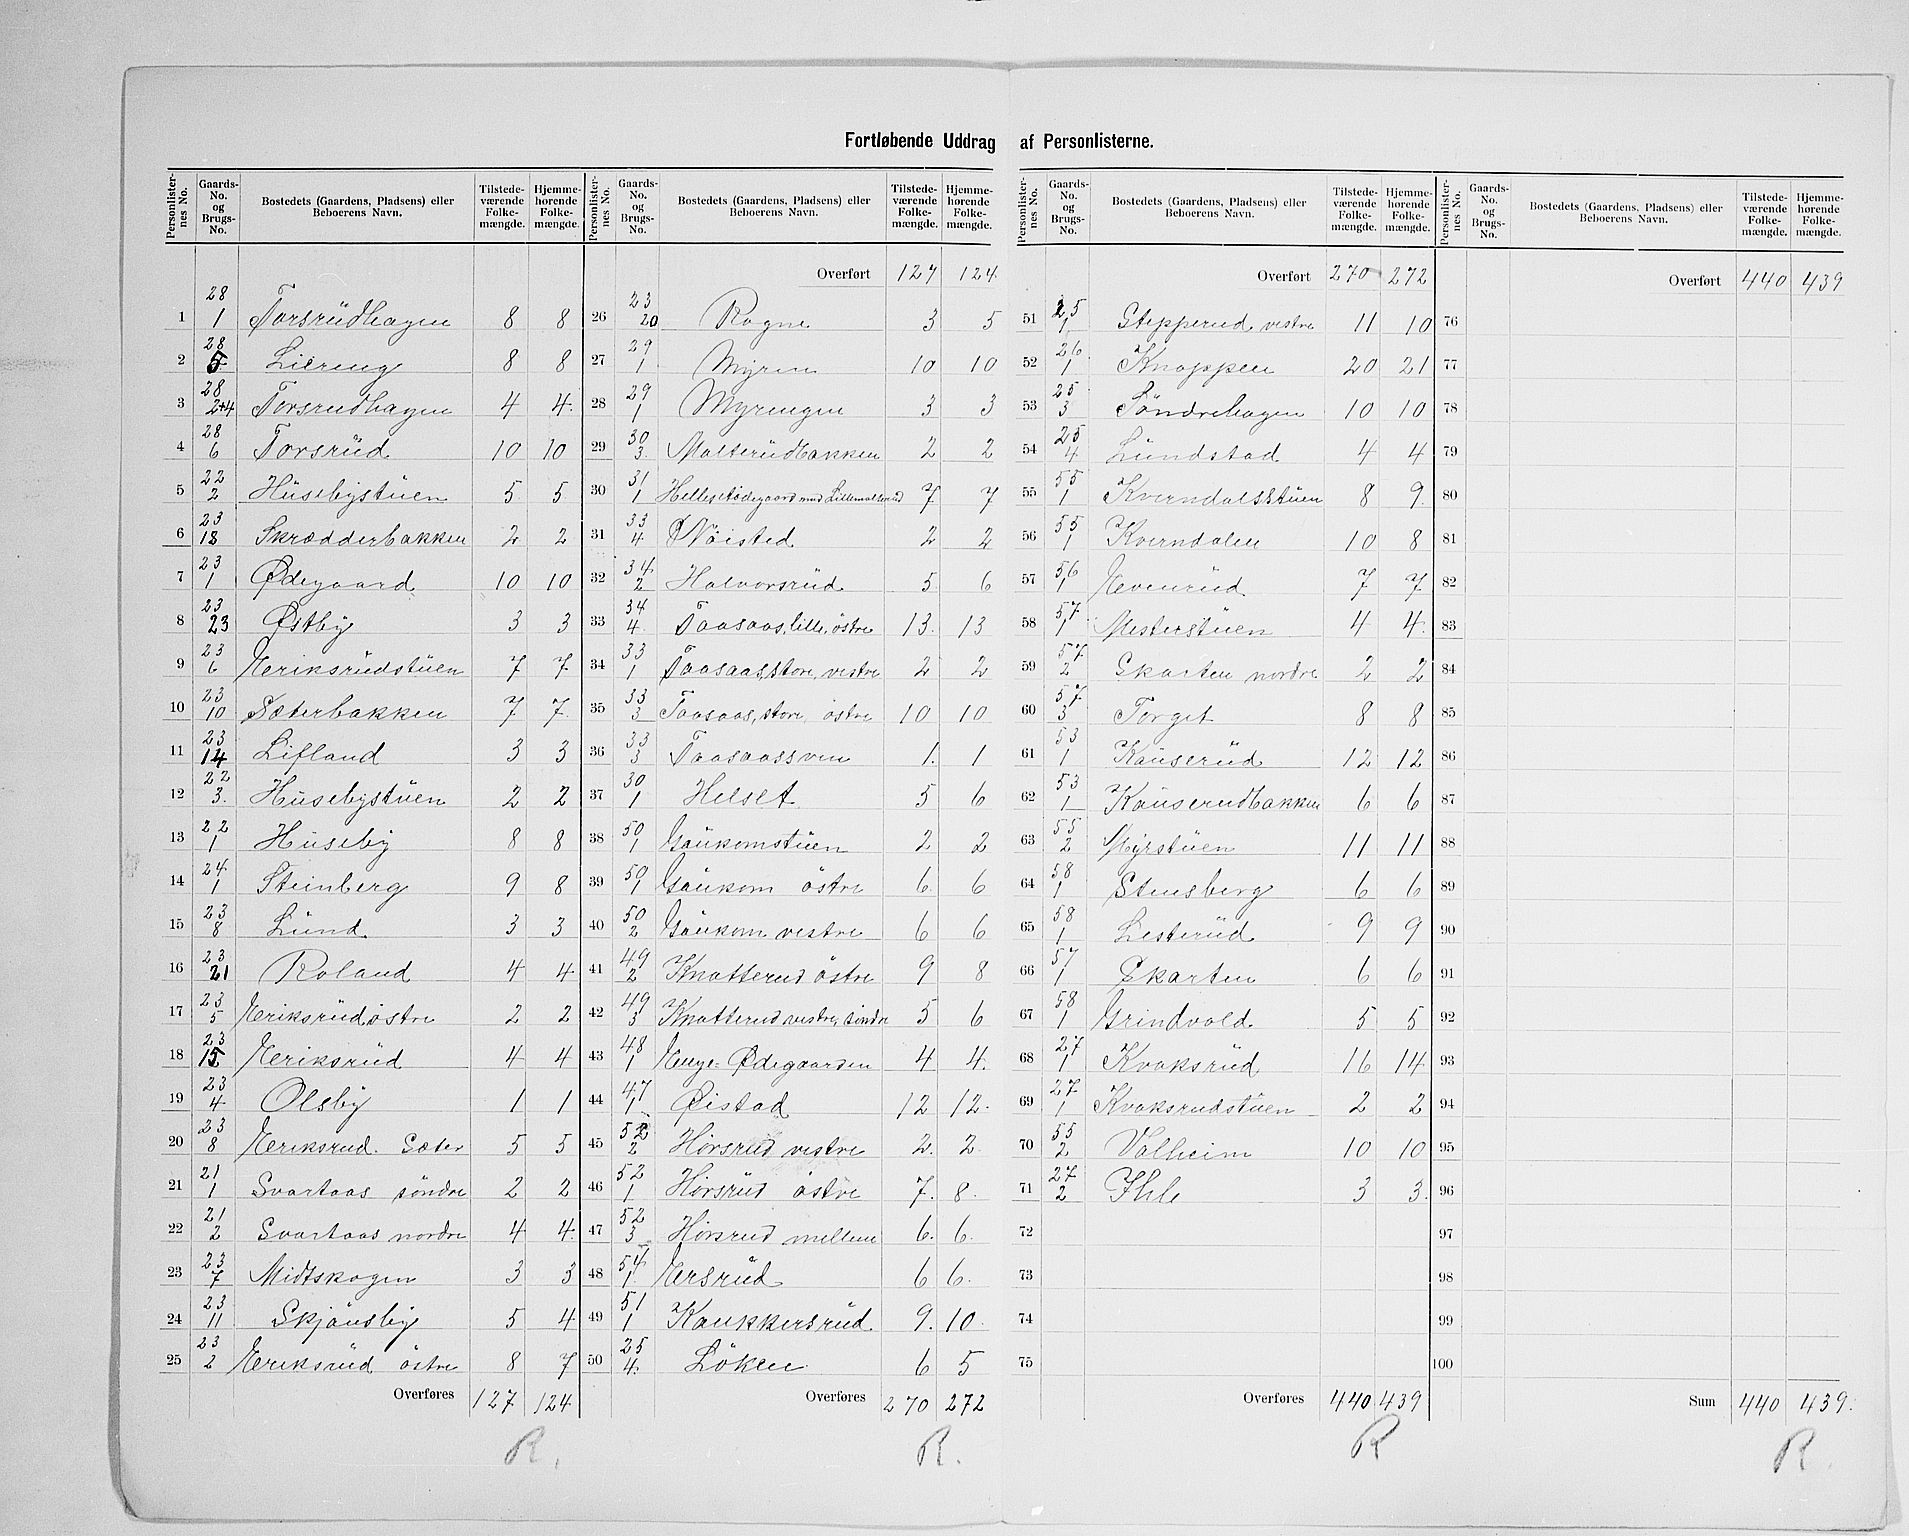 Fortløbende Uddrag af Personlisterne.
Personlister-nes No. | Gaards-No. og Brugs-No. | Bostedets (Gaardens, Pladsens) eller Beboerens Navn. | Tilstede-værende Folke-mængde. | Hjemme-hørende Folke-mængde.
1 | 28 1 | Torsrüdhagen | 8 | 8
2 | 28 5 | Liereng | 8 | 8
3 | 28 2+4 | Torsrüdhagen | 4 | 4.
4 | 28 6 | Torsrüd | 10 | 10
5 | 22 2 | Hüsebystüen | 5 | 5
6 | 23 18 | Skrædderbakken | 2 | 2
7 | 23 1 | Ødegaard | 10 | 10
8 | 23 23 | Østby | 3 | 3
9 | 23 6 | Neriksrüdstüen | 7 | 7
10 | 23 10 | Sæterbakken | 7 | 7
11 | 23 14 | Lifland | 3 | 3
12 | 22 3. | Hüsebystüen | 2 | 2
13 | 22 1 | Hüseby | 8 | 8
14 | 24 1 | Steinberg | 9 | 8
15 | 23 8 | Lünd | 3 | 3
16 | 23 21 | Roland | 4 | 4
17 | 23 5 | Neriksrüd östre | 2 | 2
18 | 23 15 | Neriksrüd | 4 | 4
19 | 23 4 | Olsby | 1 | 1
20 | 23 8 | Neriksrud. Sæter | 5 | 5
21 | 21 1 | Svartaas söndre | 2 | 2
22 | 21 2 | Svartaas nordre | 4 | 4.
23 | 23 7 | Midtskogen | 3 | 3
24 | 23 11 | Skjönsby | 5 | 4
25 | 23 2 | Neriksrüd östre | 8 | 7
Overføres 127 | 124
R.
Personlister-nes No. | Gaards-No. og Brugs-No. | Bostedets (Gaardens, Pladsens) eller Beboerens Navn. | Tilstede-værende Folke-mængde. | Hjemme-hørende Folke-mængde.
Overført 127 | 124.
26 | 23 20 | Rogne | 3 | 5
27 | 29 1 | Myren | 10 | 10
28 | 29 1 | Myrengen | 3 | 3
29 | 30 3. | Malterüdbakken | 2 | 2
30 | 31 1 | Hellesetödegaard med Lillemalterud | 7 | 7
31 | 33 4 | Nöisted | 2 | 2
32 | 34 2 | Halvorsrüd | 5 | 6
33 | 34 4. | Taasaas, lille, östre | 13. | 13
34 | 33 1 | Taasaas, store, vestre | 2 | 2
35 | 33 3 | Taasaas, store, östre | 10 | 10
36 | 33 3 | Taasaassven | 1. | 1
37 | 30 1 | Helset | 5 | 6
38 | 50 1 | Gaükomstüen | 2 | 2
39 | 50 1 | Gaükom östre | 6 | 6
40 | 50 2 | Gaükom vestre | 6 | 6
41 | 49 2 | Knatterud östre | 9 | 8
42 | 49 3 | Knatterud vestre, söndre | 5 | 6
43 | 48 1 | Enge-Ødegaarden | 4 | 4.
44 | 47 1 | Øistad | 12 | 12.
45 | 52 2 | Hörsrüd vestre | 2. | 2.
46 | 52 1 | Hörsrüd östre | 7. | 8.
47 | 52 3 | Hörsrud mellem | 6. | 6.
48 | 54 1. | Nersrüd | 6 | 6.
49 | 51 1 | Kaukkersrüd | 9. | 10.
50 | 25 4. | Löken | 6 | 5
Overføres 270 | 272
R.
Personlister-nes No. | Gaards-No. og Brugs-No. | Bostedets (Gaardens, Pladsens) eller Beboerens Navn. | Tilstede-værende Folke-mængde. | Hjemme-hørende Folke-mængde.
Overført 270 | 272
51 | 25 1 | Stepperud, vestre | 11 | 10
52 | 26 1 | Knappen | 20 | 21
53 | 25 3 | Söndrehagen | 10 | 10
54 | 25 4 | Lündstad | 4 | 4
55 | 55 1 | Kverndalsstüen | 8 | 9.
56 | 55 1 | Kverndalen | 10 | 8
57 | 56 1 | Nevenrüd | 7 | 7
58 | 57 1 | Mesterstüen | 4 | 4.
59 | 57 2 | Skarten nordre | 2 | 2
60 | 57 3 | Torget | 8 | 8
61 | 53 1 | Kauserüd | 12 | 12
62 | 53 1 | Kauserudbakken | 6 | 6
63 | 55 2 | Myrstüen | 11 | 11
64 | 58 1 | Stensberg | 6 | 6
65 | 58 1 | Lesterüd | 9 | 9
66 | 57 1 | Skarten | 6 | 6
67 | 58 1 | Grindvold | 5 | 5
68 | 27 1 | Kvaksrüd | 16 | 14
69 | 27 1 | Kvaksrudstüen | 2 | 2
70 | 55 2 | Valheim | 10 | 10
71 | 27 2 | Ihle | 3 | 3.
72
73
74
75
Overføres 440 | 439
R
Personlister-nes No. | Gaards-No. og Brugs-No. | Bostedets (Gaardens, Pladsens) eller Beboerens Navn. | Tilstede-værende Folke-mængde. | Hjemme-hørende Folke-mængde.
Overført 440 | 439
76
77
78
79
80
81
82
83
84
85
86
87
88
89
90
91
92
93
94
95
96
97
98
99
100
Sum 440 | 439.
R.